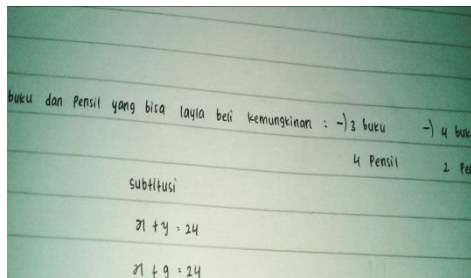 buku dan Pensil yang bisa layla beli kemungkinan : -) 3 buku -) 4 buk
4 Pensil 2 Pe
subtitusi
x + y = 24
x + 9 = 24